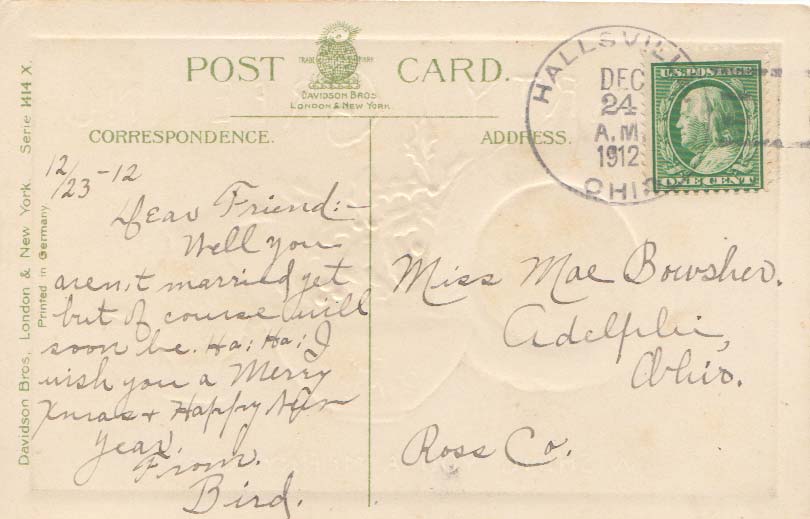 POST CARD.
TRADE MARK
DAVIDSON BROS.
LONDON & NEW YORK.
CORRESPONDENCE.
ADDRESS.
HALLSVILLE
DEC
24
A.M.
1912
OHIO
U.S. POSTAGE
ONE CENT
12/23-12
Dear Friend:-
Well you
aren't married yet
but of course will
soon be. Ha! Ha! I
wish you a Merry
Xmas & Happy New
Year.
From.
Bird.
Miss Mae Bowsher.
Adelphi,
Ohio.
Ross Co.
Davidson Bros., London & New York. Serie 1414 X.
Printed in Germany